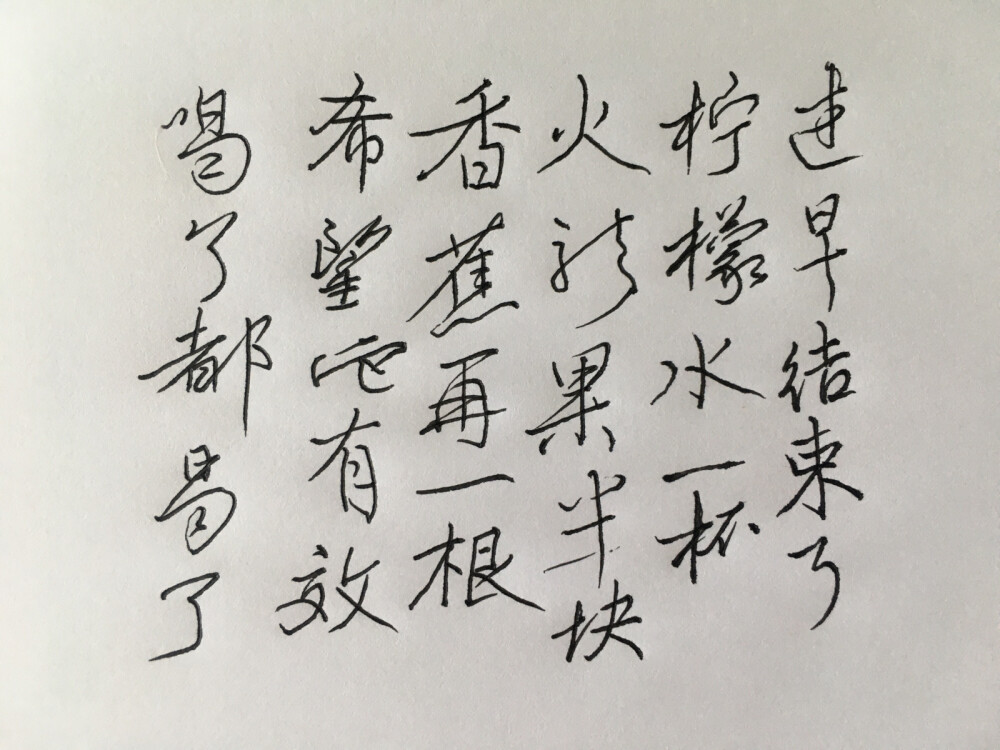 早结束了
柠檬水一杯
火龙果半块
香蕉再一根
希望它有效
喝了都了